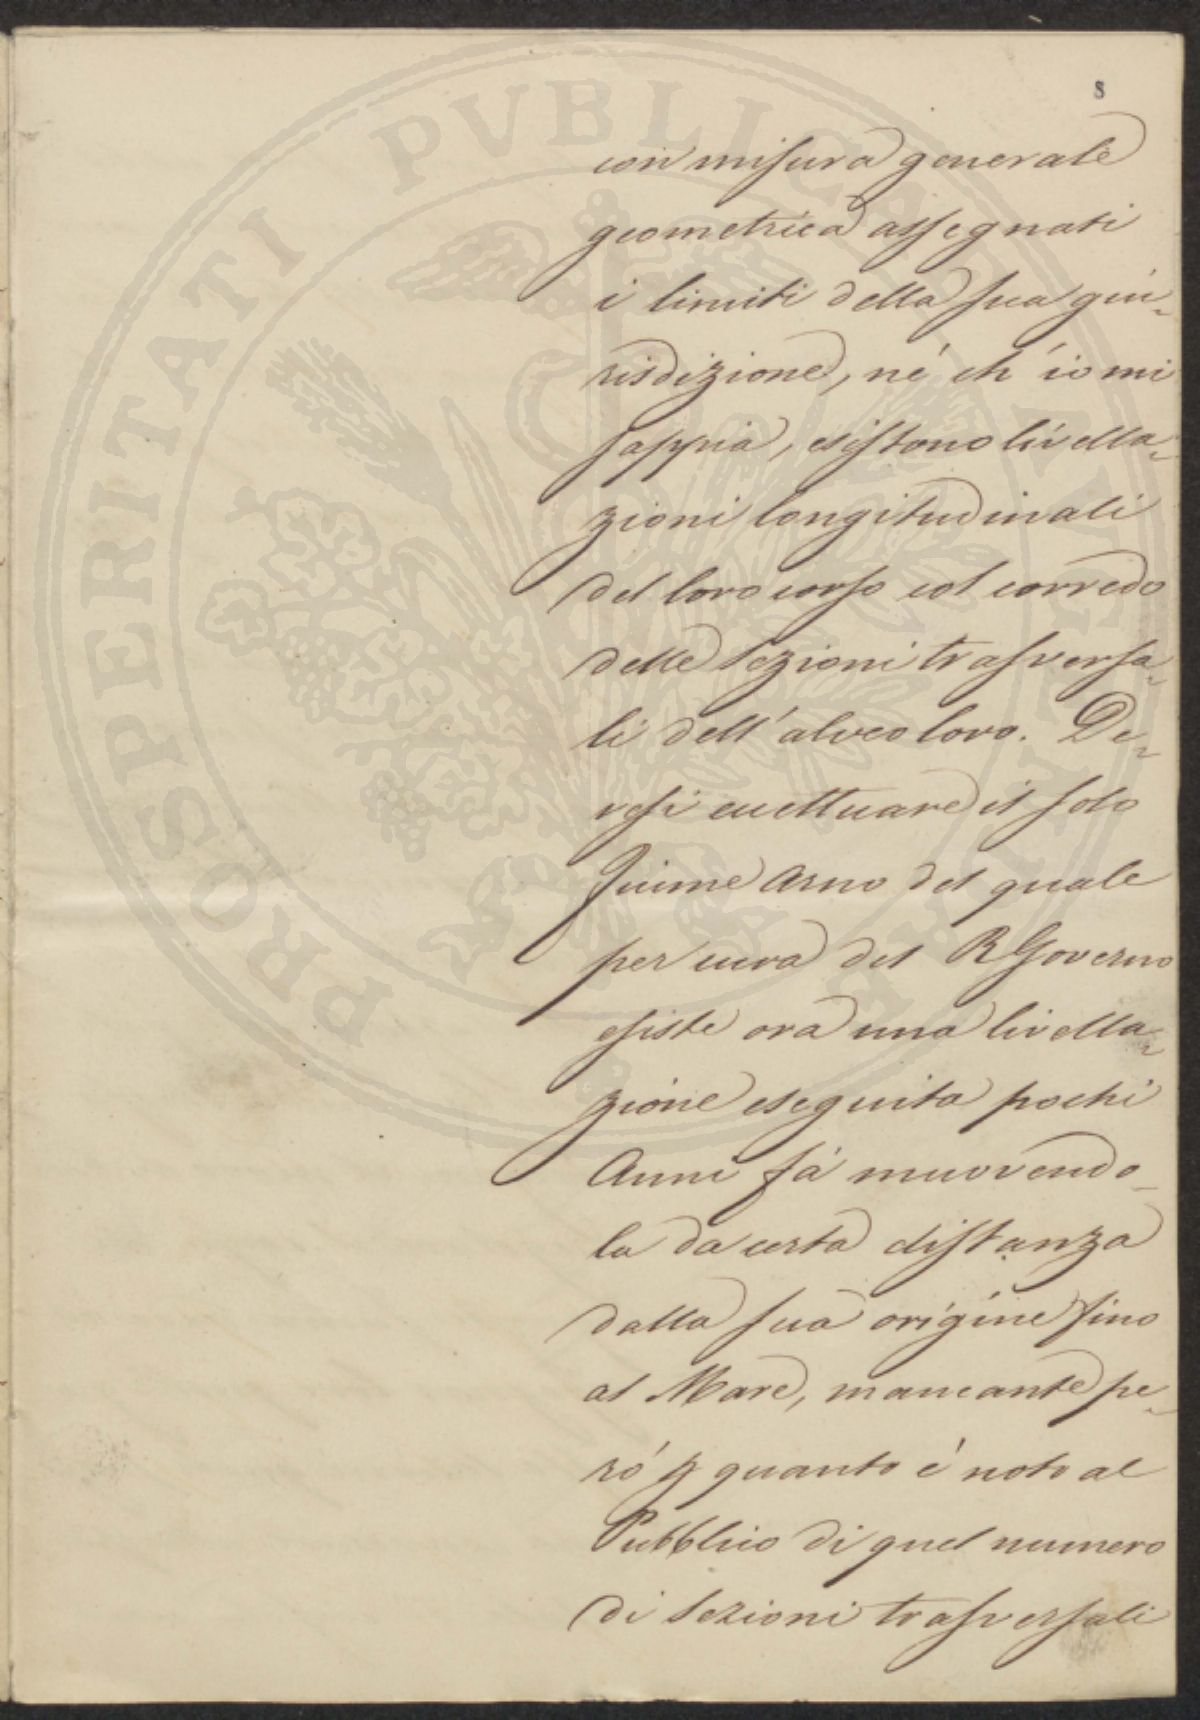 8
con misura generale
geometrica assegnati
i limiti della sua giu-
risdizione, né ch'io mi
sappia, esistono livella-
zioni longitudinali
del loro corso col corredo
delle sezioni trasversa-
li dell'alveo loro. De-
vesi eccettuare il solo
Fiume Arno del quale
per cura del R Governo
esiste ora una livella-
zione eseguita pochi
Anni fà muovendo-
la da certa distanza
dalla sua origine fino
al Mare, mancante pe-
ró p quanto é noto al
Pubblico di quel numero
di sezioni trasversali
PROSPERITATI PVBLICAE